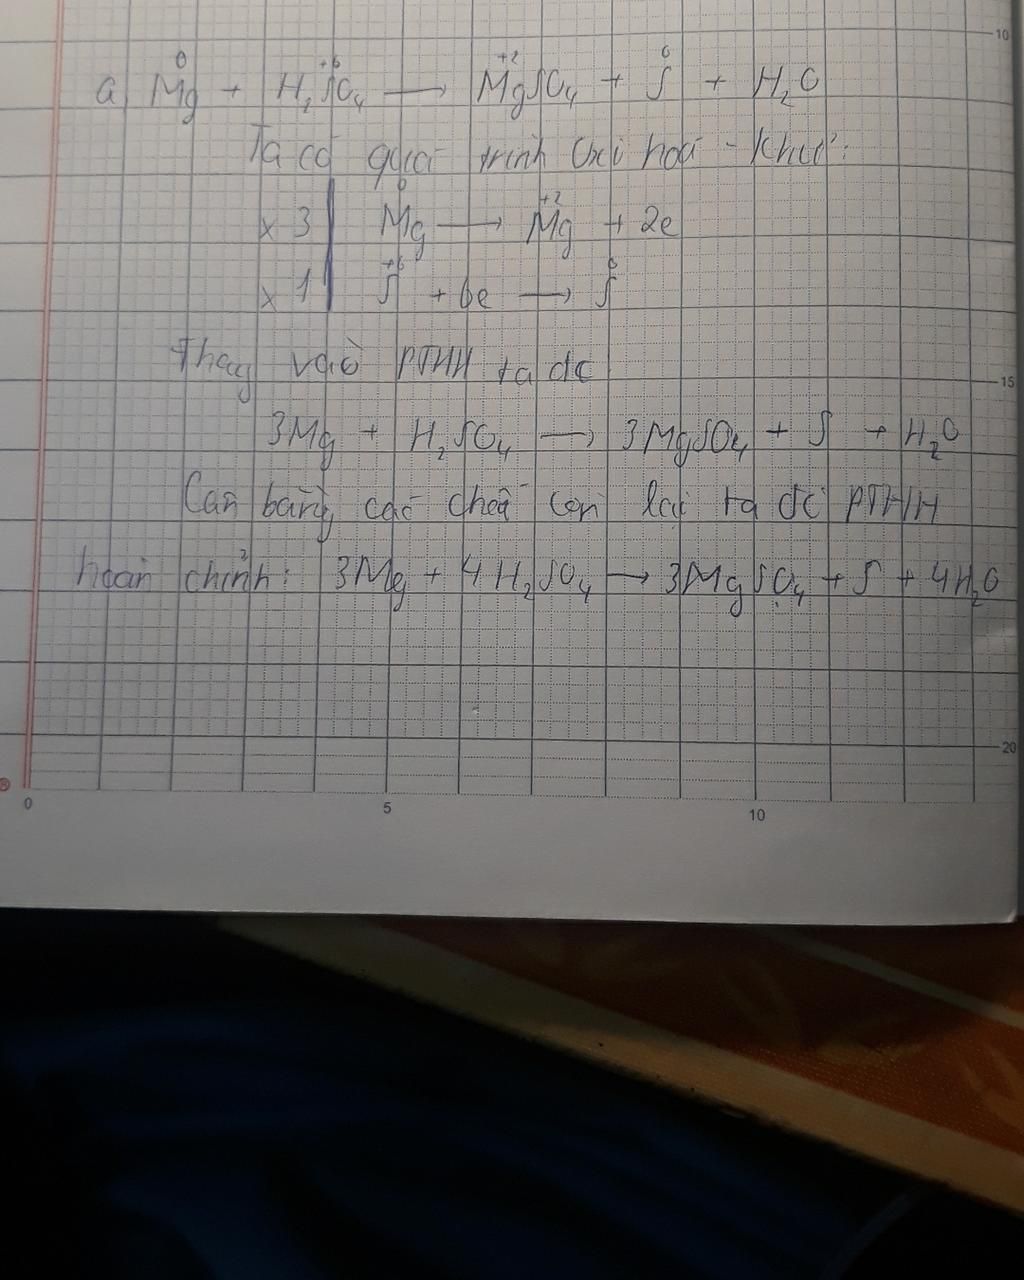 a, Mg⁰ + H₂S⁺⁶O₄ → Mg⁺²SO₄ + S⁰ + H₂O
Ta có quá trình Oxi hoá - Khử:
x 3 | Mg⁰ → Mg⁺² + 2e
x 1 | S⁺⁶ + 6e → S⁰
Thay vào PTHH ta đc
3Mg + H₂SO₄ → 3MgSO₄ + S + H₂O
Cân bằng các chất còn lại ta đc PTHH
hoàn chỉnh: 3Mg + 4H₂SO₄ → 3MgSO₄ + S + 4H₂O
10
15
20
0 5 10